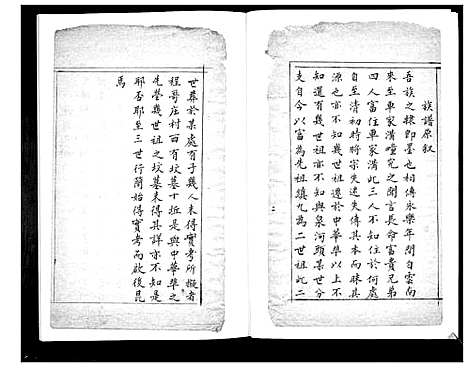 族譜原叙
吾族之隸即墨也相傳永樂年間自雲南
來至車家溝嶞兄之聞言長命富貴兄弟
四人富住車家溝此三人不知住於何處
自至清初時將宗失迷失傳其本而昧其
源也亦不知幾世祖遷於中華埠以上不
知還有幾世祖亦不知與泉河頭某世分
支自今以富為先祖鎮九為二世祖此二
世葬於某處有子幾人未得實考所擬者
程哥庄村西有坟墓十拆是與中華埠之
先塋幾世祖之坟墓未得其詳亦不知是
耶否耶至三世行蘭始得實考而啟後昆
焉